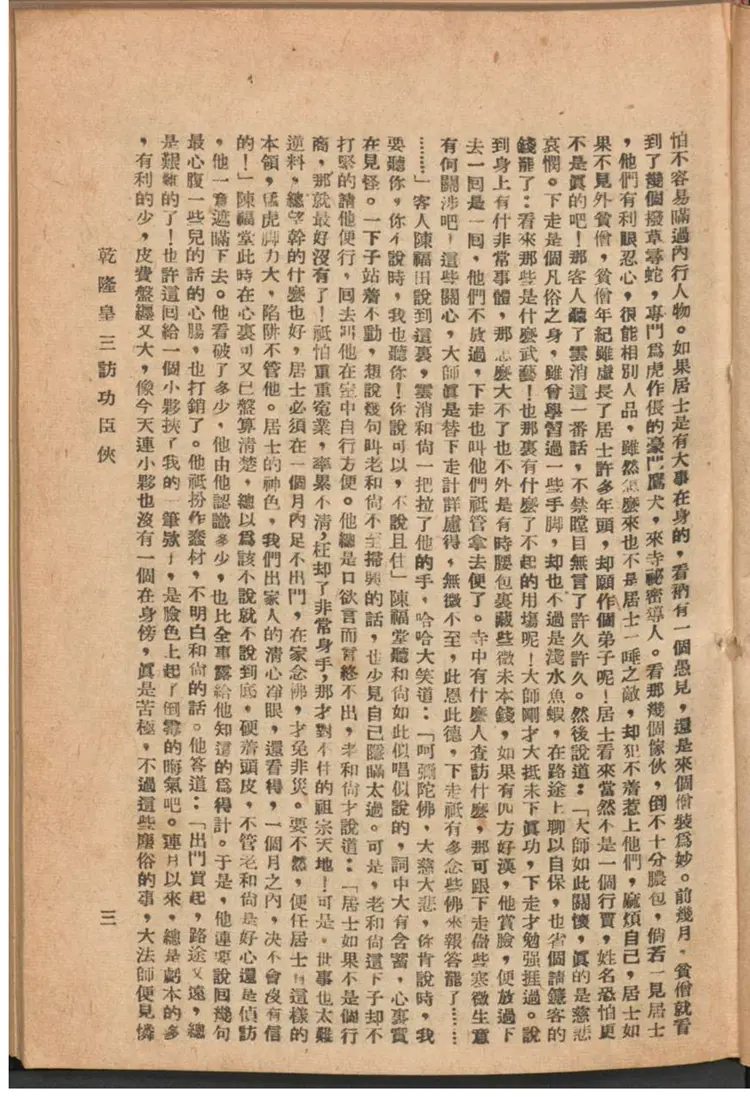 怕不容易瞞過內行人物。如果居士是有大事在身的，看稍有一個愚見，還是來個僧裝爲妙。前幾月，貧僧就看
到了幾個撥草尋蛇，專門爲虎作倀的豪門鷹犬，來寺祕密導人。看那幾個傢伙，倒不十分膿包，倘若一見居士
，他們有利眼忍心，很能相別人品，雖然怎麽來也不是居士一唾之敵，却犯不着惹上他們，麻煩自己，居士如
果不見外貧僧，貧僧年紀雖虛長了居士許多年頭，却願作個弟子呢！居士看來當然不是一個行賈，姓名恐怕更
不是眞的吧！那客人聽了雲消這一番話，不禁瞠目無言了許久許久。然後說道：「大師如此關懷，眞的是慈悲
哀憫。下走是個凡俗之身，雖曾學習過一些手脚，却也不過是淺水魚蝦，在路途上聊以自保，也省個請鑣客的
錢罷了：看來那些是什麽武藝！也那裏有什麽了不起的用塲呢！大師剛才大抵未下眞功，下走才勉强捱過。說
到身上有什非常事體，那怎麽大不了也不外是有時腰包裏藏些微末本錢，如果有四方好漢，他賞臉，便放過下
去一回是一回，他們不放過，下走也叫他們祗管拿去便了。寺中有什麽人查訪什麽，那可跟下走儲些寒微生意
有何關涉吧！這些關心，大師眞是替下走計詳慮得，無微不至，此恩此德，下走祗有多念些佛來報答罷了……
……」客人陳福田說到這裏，雲消和尙一把拉了他的手，哈哈大笑道：「呵彌陀佛，大慈大悲，你肯說時，我
要聽你，你不說時，我也聽你！你說可以，不說且住」陳福堂聽和尙如此似唱似說的，詞中大有含蓄，心裏實
在見怪。一下子站着不動，想說幾句叫老和尙不至掃興的話，也少見自己隱瞞太過。可是，老和尙這下子却不
打緊的請他便行，回去叫他在室中自行方便。他總是口欲言而言終不出，老和尙才說道：「居士如果不是個行
商，那就最好沒有了！祗怕重重寃業，牽累不淸，枉却了非常身手，那才對不住的祖宗天地！可是，世事也太難
逆料，總望幹的什麽也好，居士必須在一個月內足不出門，在家念佛，才免非災。要不然，便任居士有這樣的
本領，猛虎脚力大，陷阱不管他。居士的神色，我們出家人的清心淨眼，還看得，一個月之內，决不會沒有信
的！」陳福堂此時在心裏可又已盤算清楚，總以爲該不說就不說到底，硬着頭皮，不管老和尙是好心還是偵訪
，他一意遮瞞下去。他看破了多少，他由他認識多少，也比全事露給他知道的爲得計。于是，他連要說回幾句
最心腹一些兒的話的心腸，也打銷了。他祗扮作蠢材，不明白和尙的話。他答道：「出門買起，路途又遠，總
是艱難的了！也許這回給一個小夥挾了我的一筆欵子，是臉色上起了倒霉的晦氣吧。連月以來，總是虧本的多
，有利的少，皮費盤纏又大，像今天連小夥也沒有一個在身傍，眞是苦極，不過這些塵俗的事，大法師便見憐
乾隆皇三訪功臣俠
三